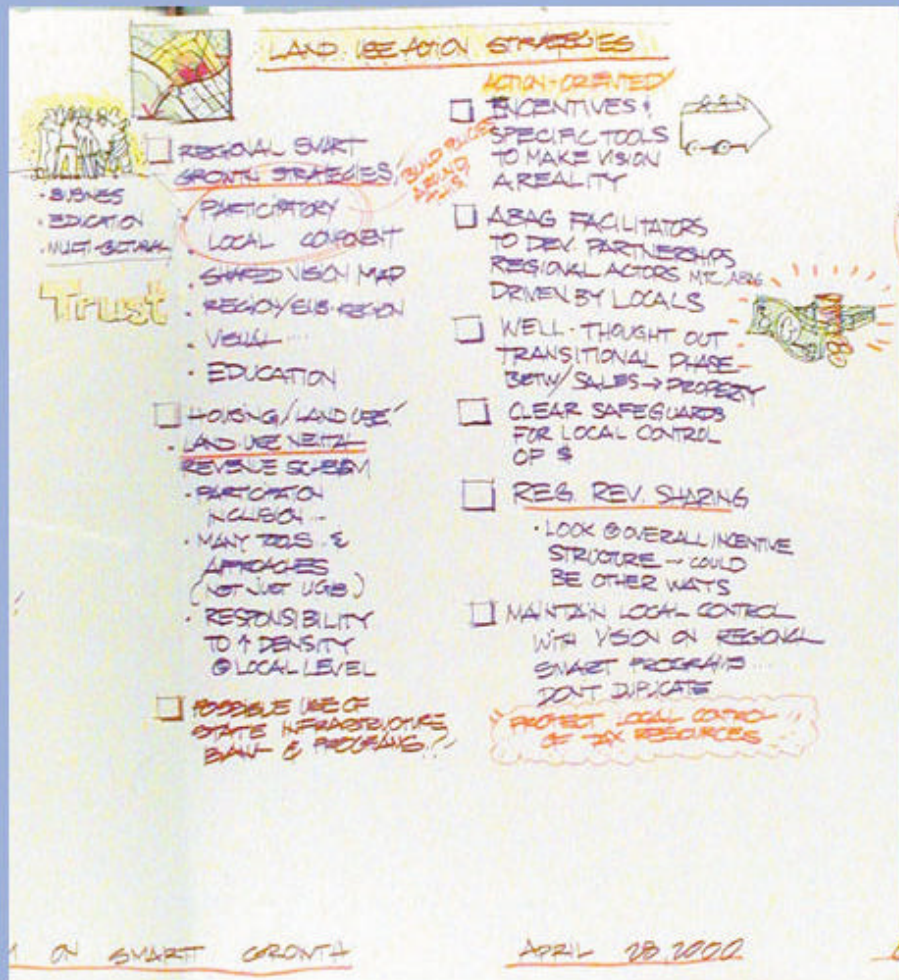 LAND USE ACTION STRATEGIES
• BUSINESS
• EDUCATION
• MULTI-CULTURAL
Trust
☐ REGIONAL SMART
GROWTH STRATEGIES
BUILD POLICIES
AROUND
THIS!
• PARTICIPATORY
• LOCAL COMPONENT
• SHARED VISION MAP
• REGION/SUB-REGION
• VISUAL ...
• EDUCATION
☐ HOUSING/LAND USE
• LAND USE NEUTRAL
REVENUE SCHEME
• PARTICIPATION
INCLUSION ...
• MANY TOOLS &
APPROACHES
(NOT JUST UGB)
• RESPONSIBILITY
TO ↑ DENSITY
@ LOCAL LEVEL
☐ POSSIBLE USE OF
STATE INFRASTRUCTURE
BANK & PROGRAMS
ACTION-ORIENTED
☐ INCENTIVES &
SPECIFIC TOOLS
TO MAKE VISION
A REALITY
☐ ABAG FACILITATORS
TO DEV. PARTNERSHIPS
REGIONAL ACTORS MTC, ABAG
DRIVEN BY LOCALS
☐ WELL-THOUGHT OUT
TRANSITIONAL PHASE
BETW/SALES → PROPERTY
☐ CLEAR SAFEGUARDS
FOR LOCAL CONTROL
OF $
☐ REG. REV. SHARING
• LOOK @ OVERALL INCENTIVE
STRUCTURE → COULD
BE OTHER WAYS
☐ MAINTAIN LOCAL CONTROL
WITH VISION ON REGIONAL
SMART PROGRAMS ...
DON'T DUPLICATE
"PROTECT LOCAL CONTROL
OF TAX RESOURCES"
ON SMART GROWTH
APRIL 28, 2000